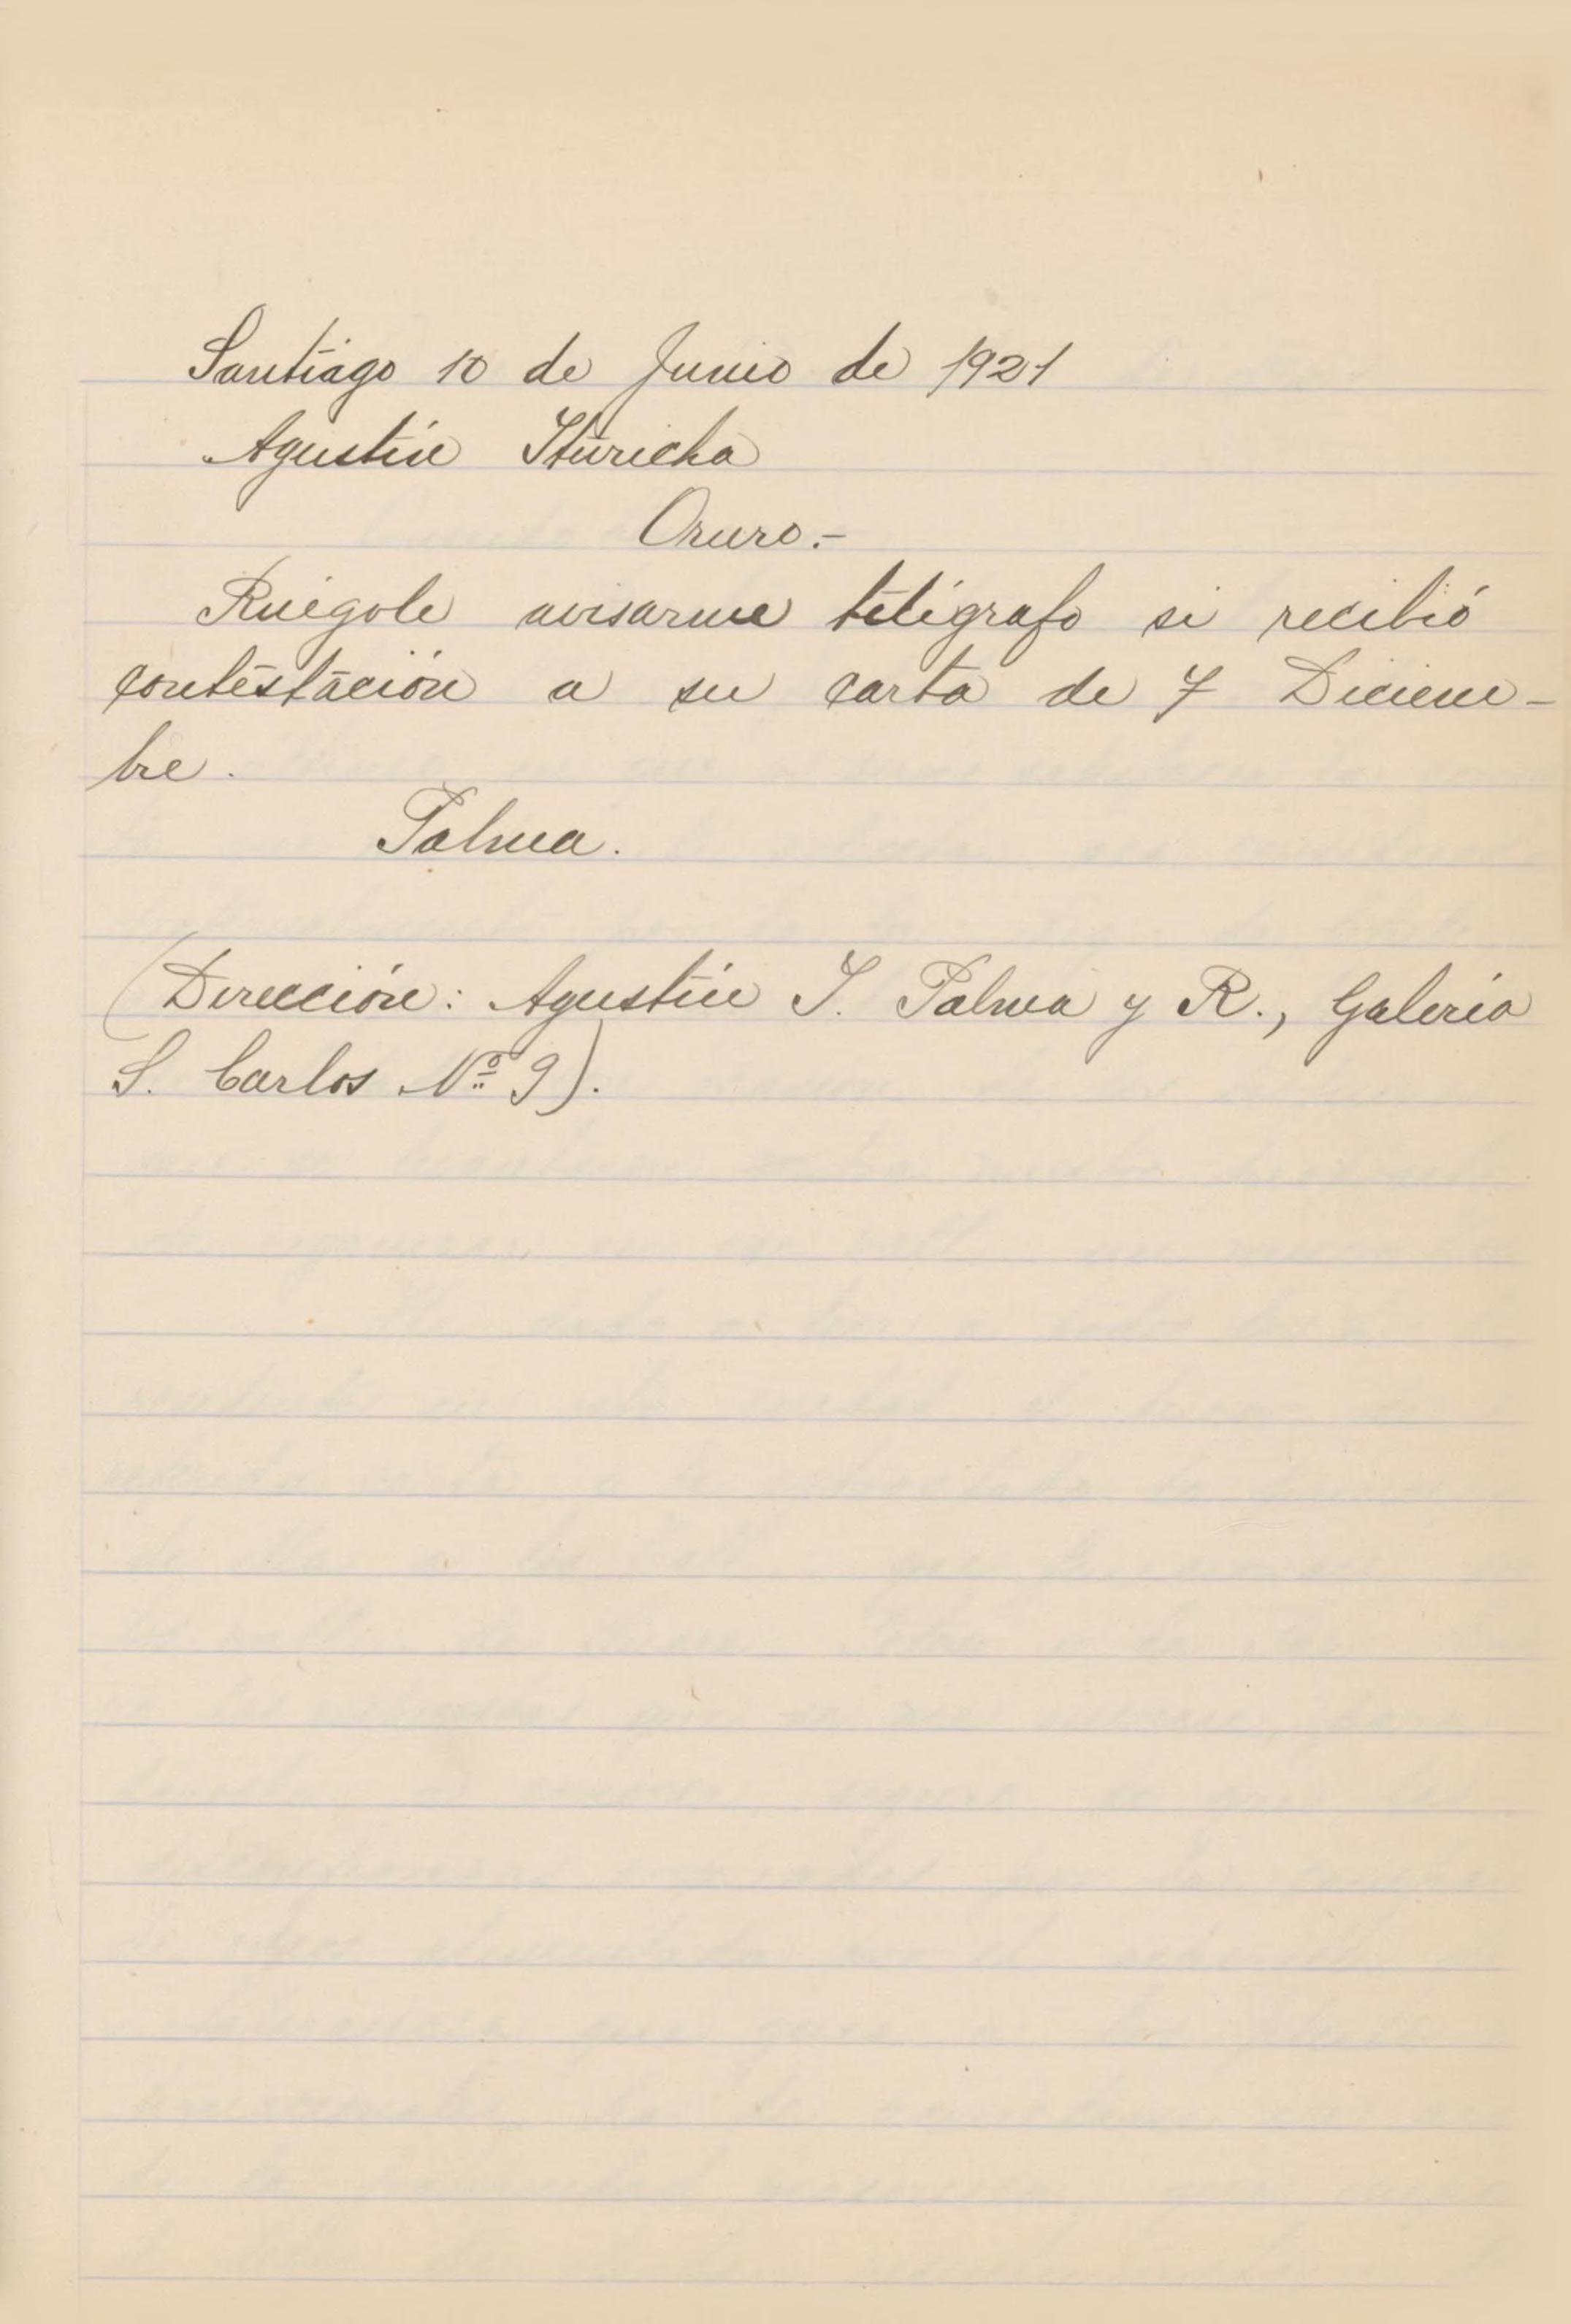 Santiago 10 de Junio de 1921
Agustín Ituricha
Oruro.-
Ruégole avisarme telégrafo si recibió
contestación a su carta de 7 Diciem-
bre.
Palma.
(Dirección: Agustín T. Palma y R., Galería
S. Carlos Nº 9).